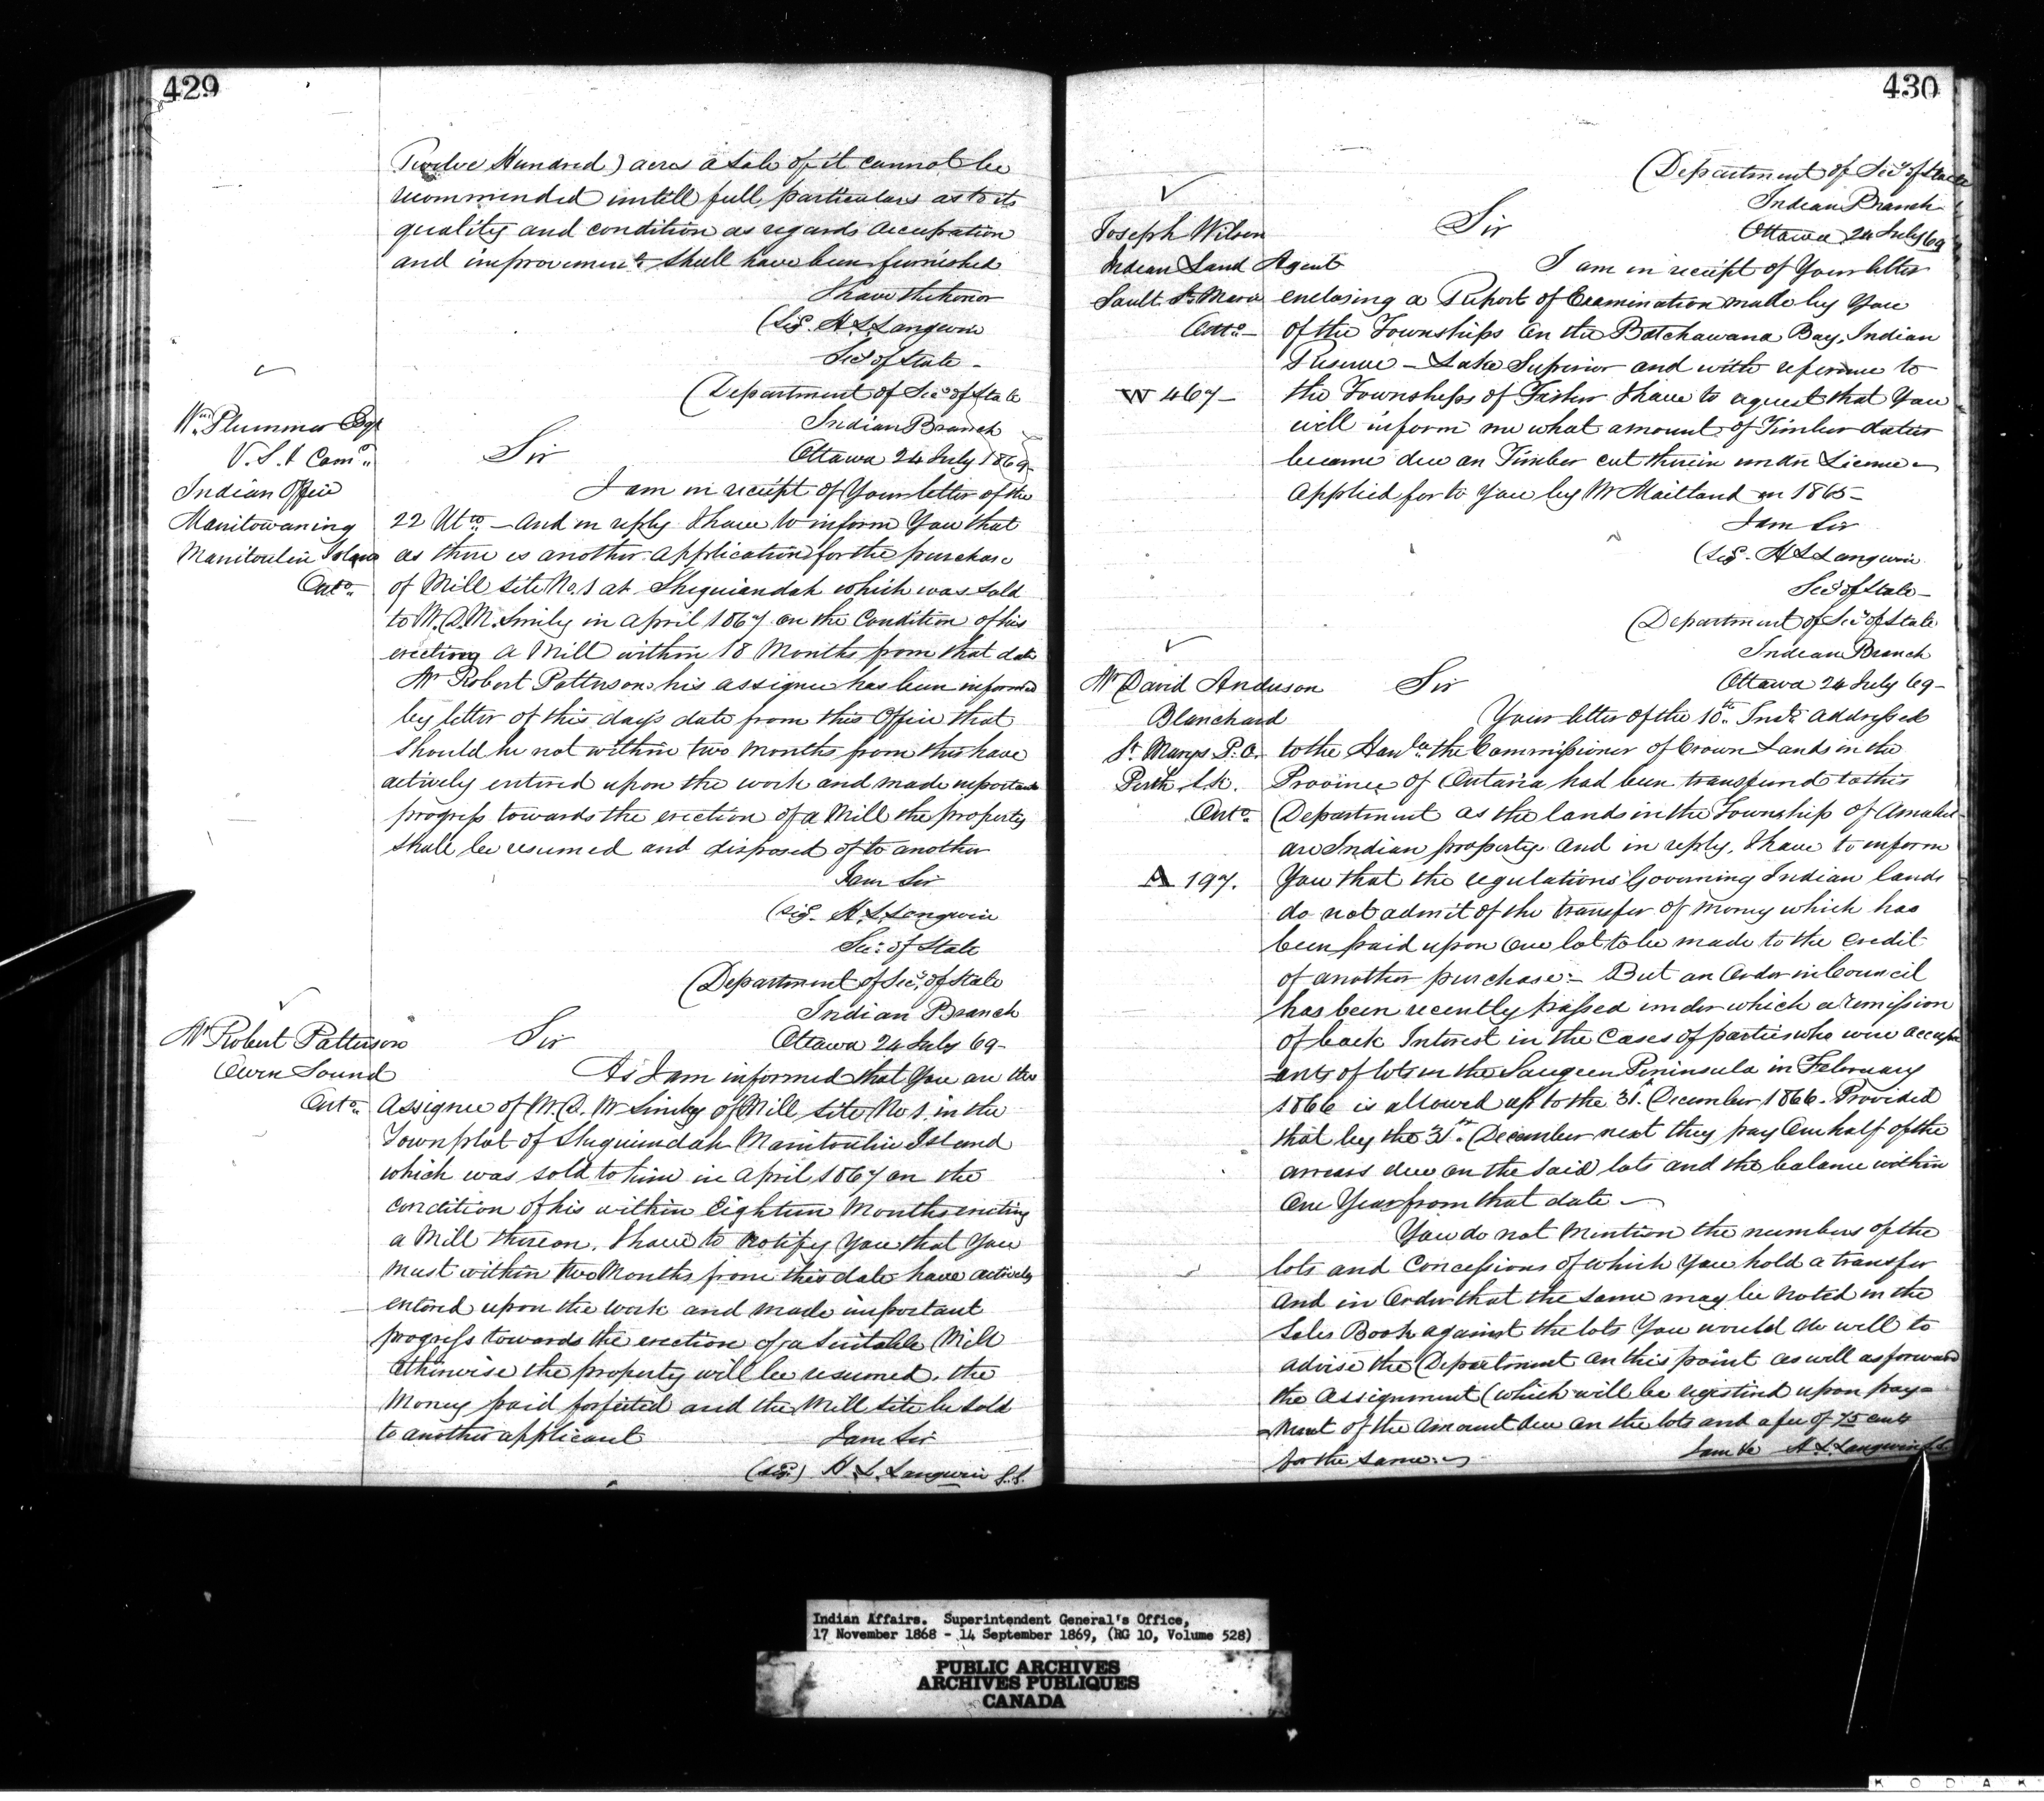 429
Twelve Hundred) acres a Sale of it cannot be
recommended untill full particulars as to its
quality and condition as regards Occupation
and improvements shall have been furnished
I have the honor
(Sigd. H.L. Langevin
Secy of State -
Wm. Plummer Esqr
V.S.I. Comr.
Indian Office
Manitowaning
Manitoulin Island
Onto.
(Department of Secy of State
Indian Branch
Sir Ottawa 24 July 1869-
I am in receipt of Your letter of the
22 Ulto - And in reply I have to inform You that
as there is another application for the purchase
of Mill Site No. 1 at Sheguiandah which was sold
to W.D.M. Smily in April 1867 on the Condition of his
erecting a Mill within 18 Months from that date
Mr Robert Patterson his assignee has been informed
by letter of this day's date from this Office that
should he not within two months from this have
actively entered upon the work and made important
progress towards the erection of a Mill the property
shall be resumed and disposed of to another
I am Sir
(Sigd. H.L. Langevin
Sec: of State
Mr Robert Patterson
Owen Sound
Onto.
(Department of Secy. of State
Indian Branch
Sir Ottawa 24 July 69-
As I am informed that You are the
Assignee of W.D. Mr Simly of Mill Site No 1. in the
Townplot of Sheguiandah Manitoulin Island
which was sold to him in April 1867 on the
condition of his within Eighteen Months erecting
a Mill thereon. I have to Notify You that You
must within two Months from this date have actively
entered upon the work and made important
progress towards the erection of a Suitable Mill
Otherwise the property will be resumed. the
Money paid forfeited and the Mill Site be sold
to another applicant I am Sir
(Sigd.) H.L. Langevin S.S.
430
Joseph Wilson
Indian Land Agent
Sault Ste Marie
Onto -
W 467 -
(Department of Secy of State
Indian Branch
Sir Ottawa 24 July 69
I am in receipt of Your letter
enclosing a Report of Examination made by You
of the Townships on the Batchawana Bay, Indian
Reserve - Lake Superior and with reference to
the Townships of Fisher I have to request that You
will inform me what amount of Timber duties
became due on Timber cut therein under License
Applied for to You by Mr Maitland in 1865-
I am Sir
(Sigd. H L Langevin
Secy of State-
Mr David Anderson
Blanchard
St Marys P.O.
Perth
Onto.
A 197.
(Department of Secy of State
Indian Branch
Sir Ottawa 24 July 69-
Your letter of the 10th Inst. Addressed
to the Honble the Commissioner of Crown Lands in the
Province of Ontario had been transferred to this
Department as the lands in the Township of Amabel
are Indian property And in reply, I have to inform
You that the regulations Governing Indian lands
do not admit of the transfer of Money which has
been paid upon One lot to be made to the Credit
of another purchase:- But an Order in Council
has been recently passed under which a remission
of back Interest in the Cases of parties who were Occup
=ants of lots in the Saugeen Peninsula in February
1866 is allowed up to the 31st. December 1866. Provided
that by the 31st. December next they pay One half of the
arrears due on the Said lots and the balance within
One Year from that date -
You do not Mention the numbers of the
lots and Concessions of which You hold a transfer
And in Order that the same may be Noted in the
Sales Book against the lots You would do well to
advise the Department on this point as well as forward
the Assignment (which will be registered upon pay=
=ment of the Amount due on the lots and a fee of 75 cents
for the same. I am &c H.L. Langevin S.S.
Indian Affairs. Superintendent General's Office,
17 November 1868 - 14 September 1869, (RG 10, Volume 528)
PUBLIC ARCHIVES
ARCHIVES PUBLIQUES
CANADA
KODAK